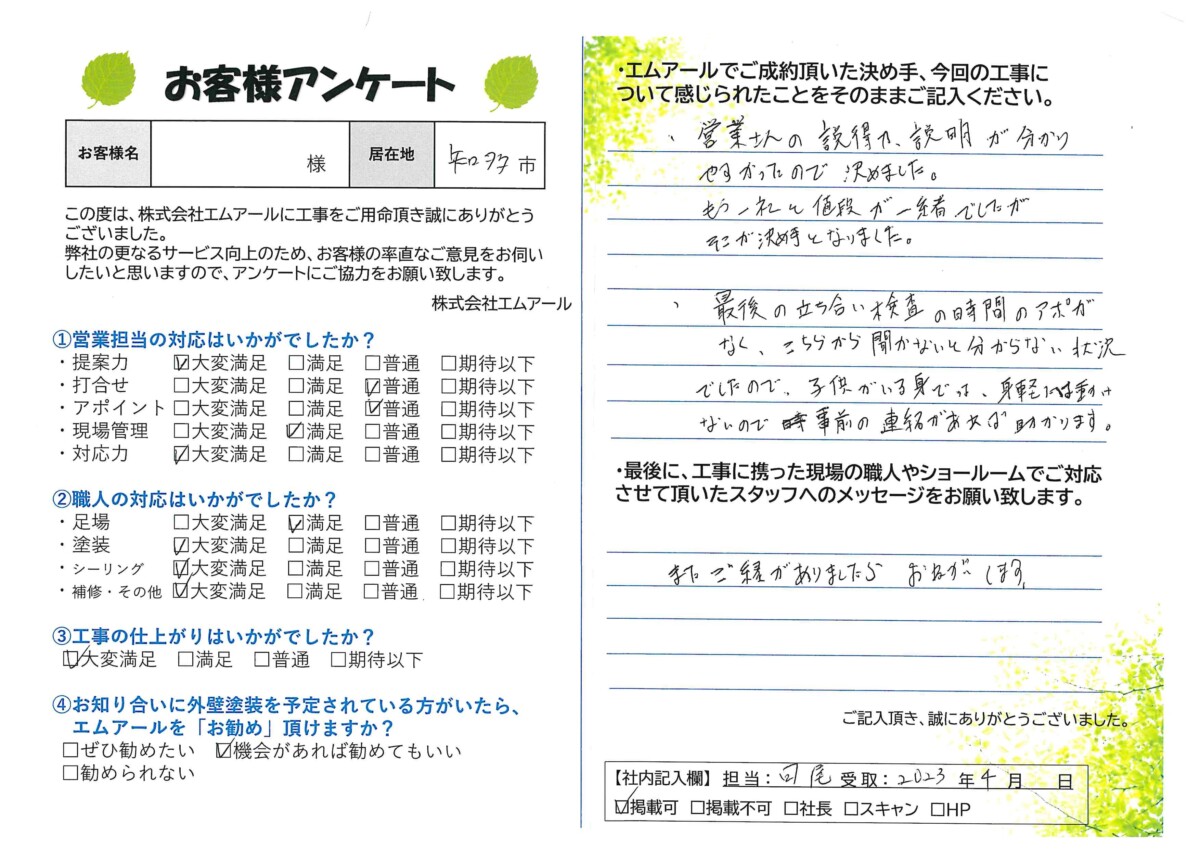 お客様アンケート
お客様名 様 居在地 知多市
この度は、株式会社エムアールに工事をご用命頂き誠にありがとう
ございました。
弊社の更なるサービス向上のため、お客様の率直なご意見をお伺い
したいと思いますので、アンケートにご協力をお願い致します。
株式会社エムアール
①営業担当の対応はいかがでしたか？
・提案力 ☑大変満足 □満足 □普通 □期待以下
・打合せ □大変満足 □満足 ☑普通 □期待以下
・アポイント □大変満足 □満足 ☑普通 □期待以下
・現場管理 □大変満足 ☑満足 □普通 □期待以下
・対応力 ☑大変満足 □満足 □普通 □期待以下
②職人の対応はいかがでしたか？
・足場 □大変満足 ☑満足 □普通 □期待以下
・塗装 ☑大変満足 □満足 □普通 □期待以下
・シーリング ☑大変満足 □満足 □普通 □期待以下
・補修・その他 ☑大変満足 □満足 □普通 □期待以下
③工事の仕上がりはいかがでしたか？
☑大変満足 □満足 □普通 □期待以下
④お知り合いに外壁塗装を予定されている方がいたら、
エムアールを「お勧め」頂けますか？
□ぜひ勧めたい ☑機会があれば勧めてもいい
□勧められない
・エムアールでご成約頂いた決め手、今回の工事に
ついて感じられたことをそのままご記入ください。
、営業さんの説得力、説明が分かり
やすかったので決めました。
もう一社と値段が一緒でしたが
そこが決め手となりました。
、最後の立ち合い検査の時間のアポが
なく、こちらから聞かないと分からない状況
でしたので、子供がいる身では、身軽には動け
ないので事前の連絡があれば助かります。
・最後に、工事に携った現場の職人やショールームでご対応
させて頂いたスタッフへのメッセージをお願い致します。
またご縁がありましたら おねがいします。
ご記入頂き、誠にありがとうございました。
【社内記入欄】担当： 受取：2023年4月 日
☑掲載可 □掲載不可 □社長 □スキャン □HP